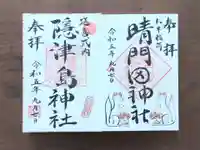 奉拝
晴門田神社
令和五年九月七日
奉拝
隠津島神社
令和五年九月七日